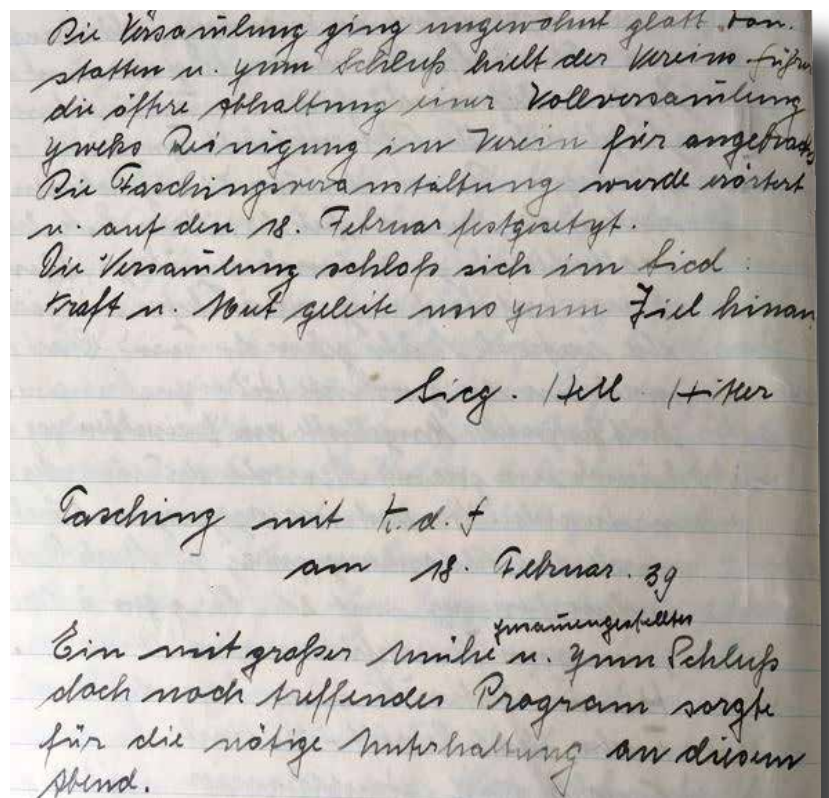 Die Versam̄lung ging ungewohnt glatt von.
statten u. zum Schluß hielt der Vereinsführer
die öftre Abhaltung einer Vollversam̄lung
zweks Reinigung im Verein für angebracht
Die Faschingsveranstaltung wurde erörtert
u. auf den 18. Februar festgesetzt.
Die Versam̄lung schloß sich im Lied:
Kraft u. Mut geleite uns zum Ziel hinan
Sieg. Heil Hitler
Fasching mit K.d.F
am 18. Februar. 39
zusam̄engestelltes
Ein mit großer Mühe u. zum Schluß
doch noch treffendes Program sorgte
für die nötige Unterhaltung an diesem
Abend.